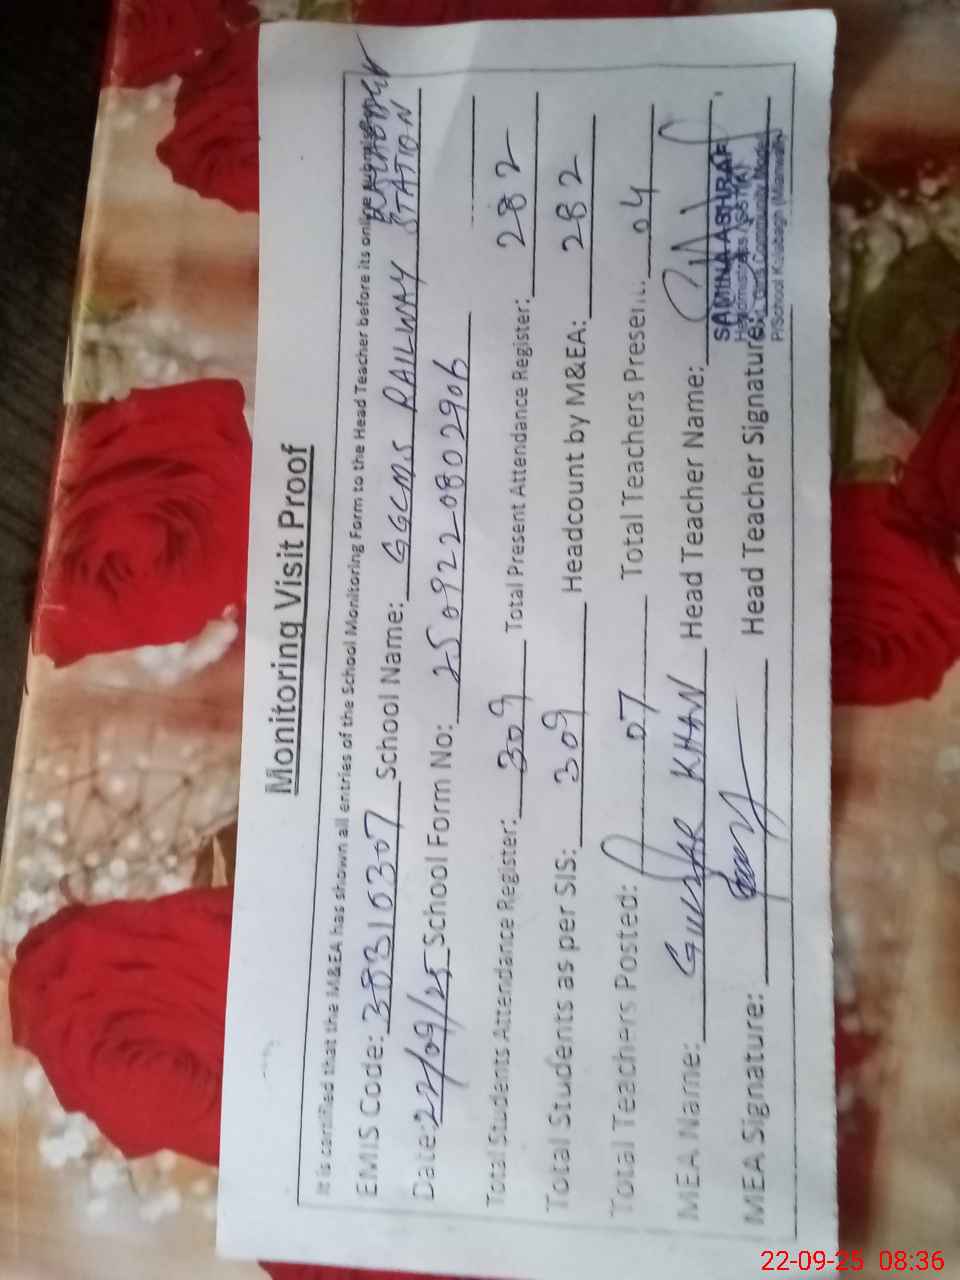 Monitoring Visit Proof
It is certified that the M&EA has shown all entries of the School Monitoring Form to the Head Teacher before its online submission
EMIS Code: 38310307 School Name: GGCMS RAILWAY STATION
Date: 22/09/25 School Form No: 2509220802906
Total Students Attendance Register: 309 Total Present Attendance Register: 282
Total Students as per SIS: 309 Headcount by M&EA: 282
Total Teachers Posted: 07 Total Teachers Present: 04
MEA Name: GULSHAR KHAN Head Teacher Name:
MEA Signature: Head Teacher Signature:
SAMINA ASHRAF
Headmistress / SST(A)
Girls Community Model
P/School Kalabagh (Mianwali)
22-09-25 08:36